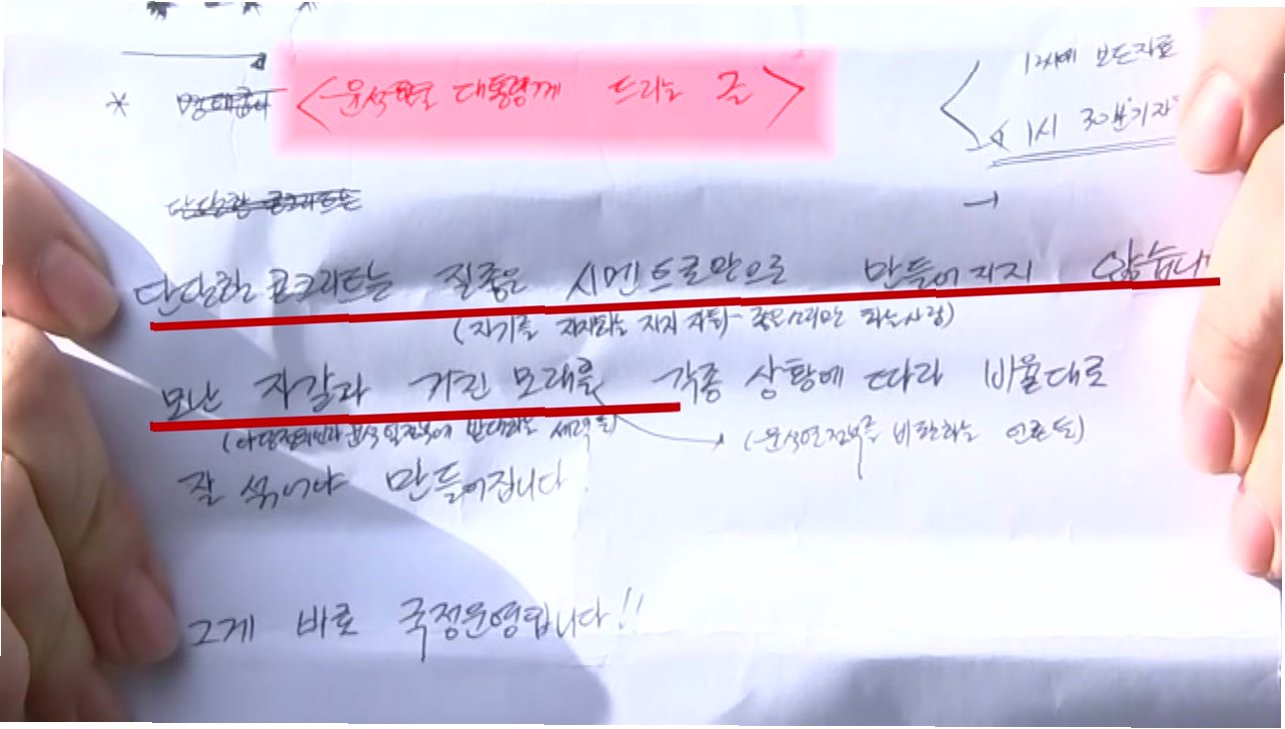 * <윤석열 대통령께 드리는 글>
12시에 보도자료
1시 30분 "기자"
단단한 콘크리트는
단단한 콘크리트는 질좋은 시멘트로만으로 만들어지지 않습니다
(자기를 지지하는 지지자들 - 좋은 소리만 하는 사람)
모난 자갈과 거친 모래를 각종 상황에 따라 비율대로
(야당정치인과 윤석열정부에 반대하는 세력들)
(윤석열정부를 비판하는 언론들)
잘 섞어야 만들어집니다.
그게 바로 국정운영입니다!!